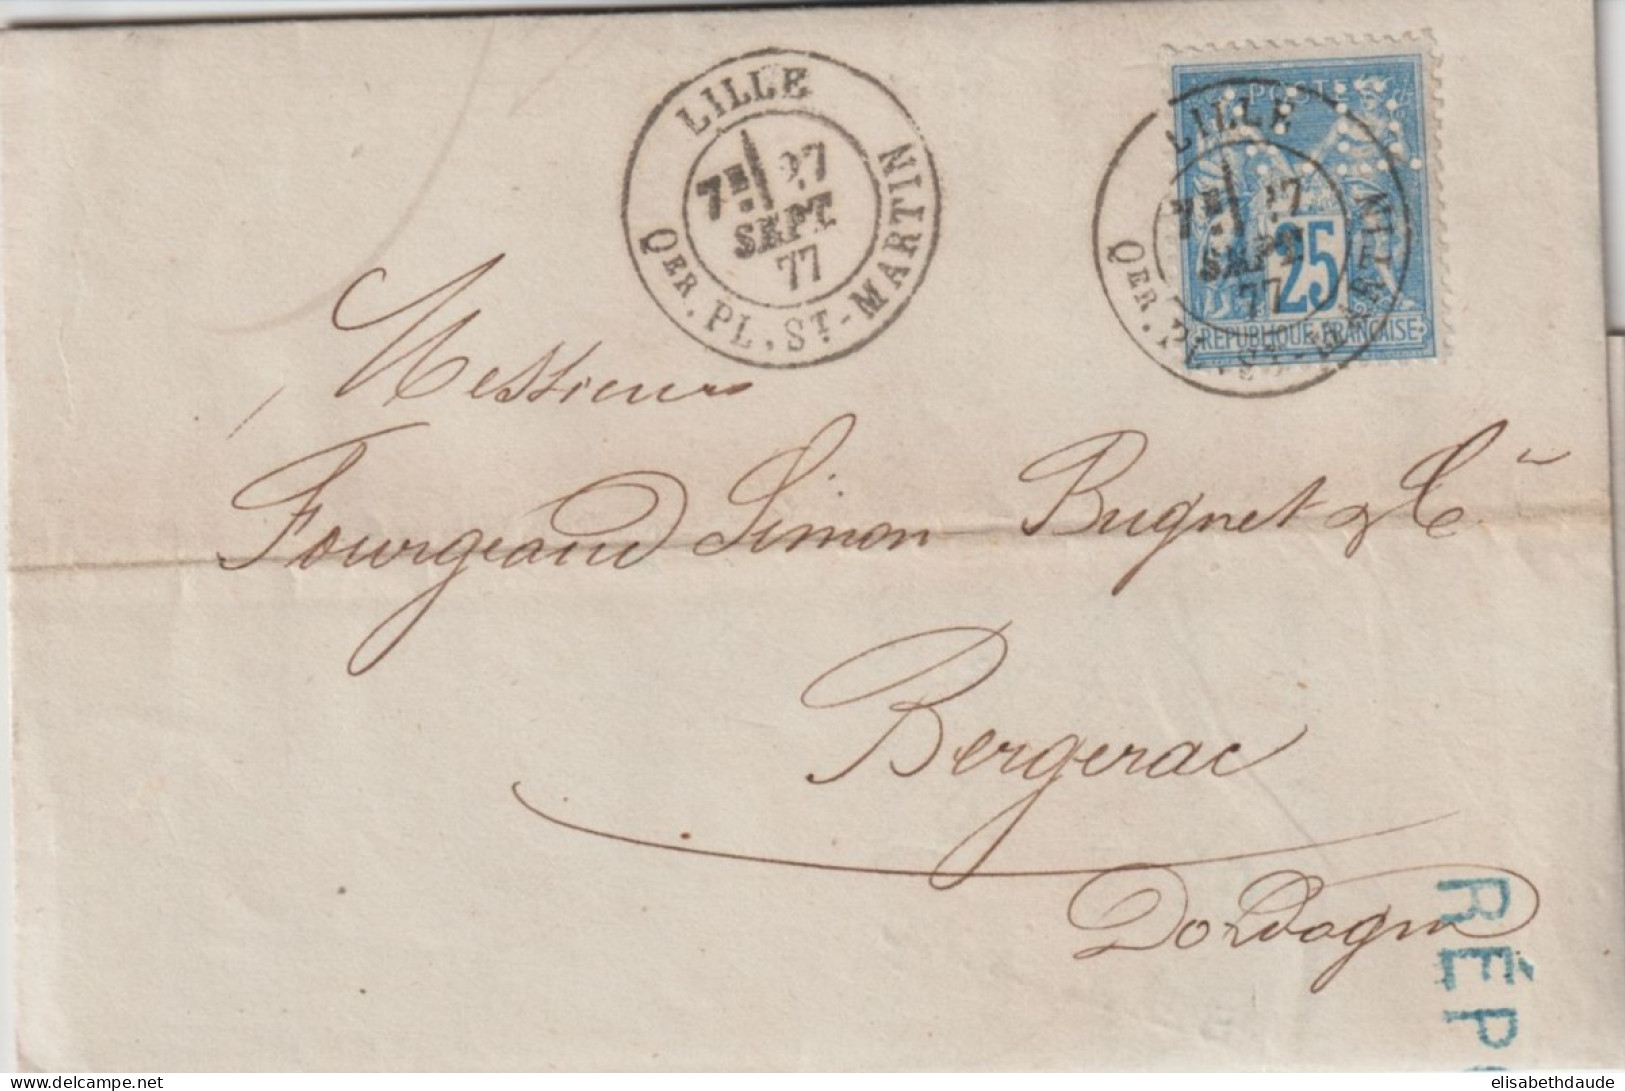 LILLE
7E 27
SEPT.
77
QER. PL. ST-MARTIN
POSTES
LILLE
7E 27
SEPT
77
QER. PL. ST-MARTIN
25
REPUBLIQUE FRANÇAISE
Messieurs
Fourgeaud Simon Bugnet & Cie
Bergerac
Dordogne
RÉP
delcampe.net
elisabethdaude